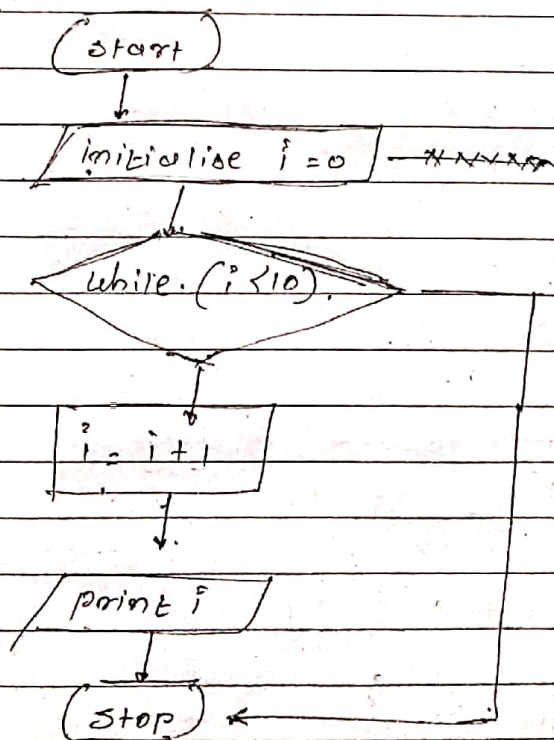 start
initialise i = 0
while. (i < 10).
i = i + 1
print i
stop